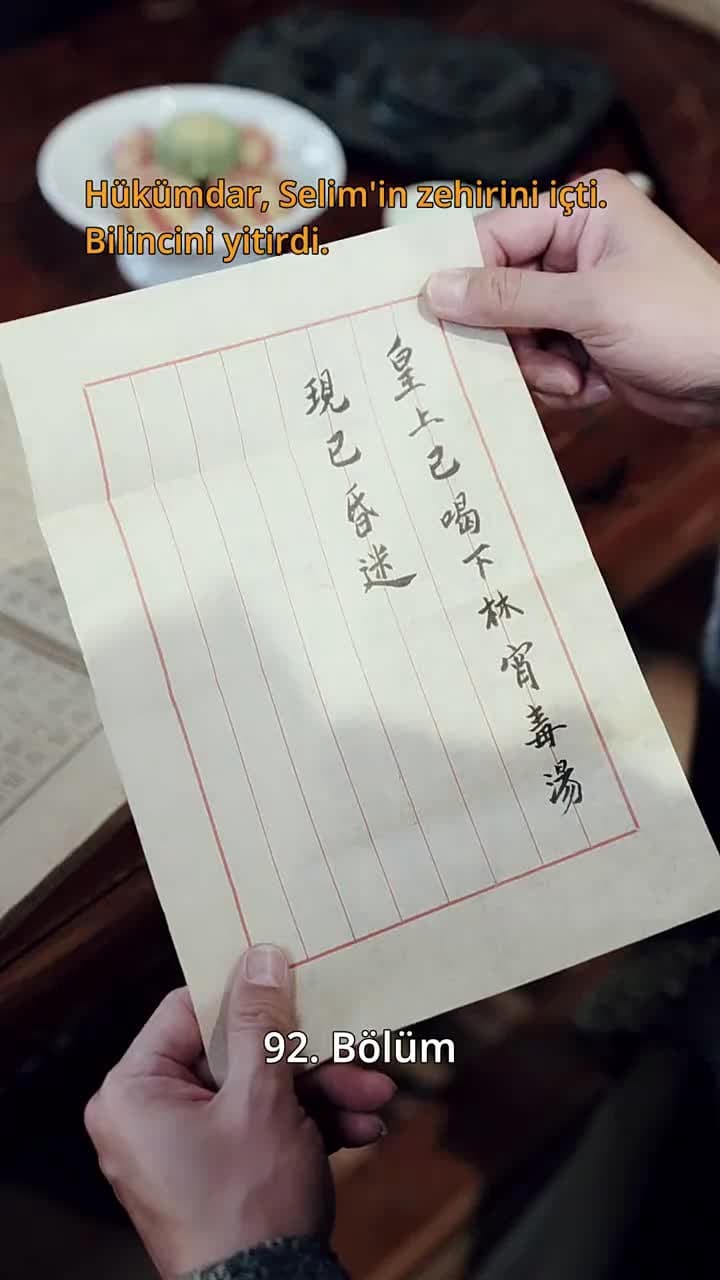 Hükümdar, Selim'in zehirini içti.
Bilincini yitirdi.
皇上已喝下林宵毒湯
現已昏迷
92. Bölüm